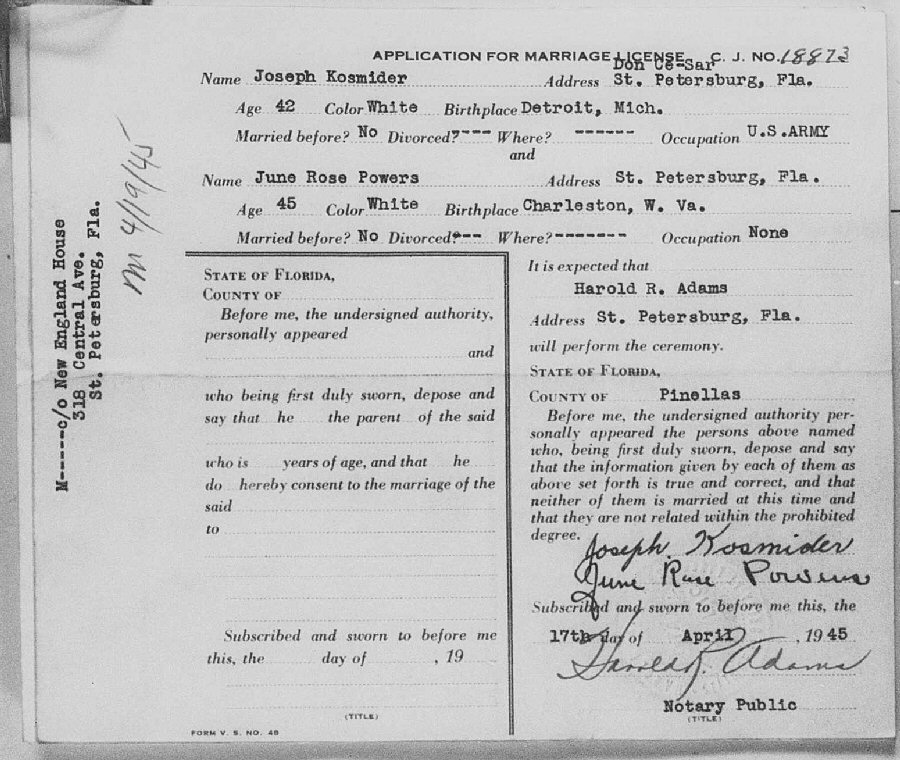 APPLICATION FOR MARRIAGE LICENSE C. J. NO. 18873
Don Ce-Sar
Name Joseph Kosmider Address St. Petersburg, Fla.
Age 42 Color White Birthplace Detroit, Mich.
Married before? No Divorced? --- Where? ------ Occupation U.S.ARMY
and
Name June Rose Powers Address St. Petersburg, Fla.
Age 45 Color White Birthplace Charleston, W. Va.
Married before? No Divorced? --- Where? ------- Occupation None
STATE OF FLORIDA,
COUNTY OF
Before me, the undersigned authority,
personally appeared
and
who being first duly sworn, depose and
say that he the parent of the said
who is years of age, and that he
do hereby consent to the marriage of the
said
to
Subscribed and sworn to before me
this, the day of , 19
(TITLE)
FORM V. S. NO. 48
It is expected that
Harold R. Adams
Address St. Petersburg, Fla.
will perform the ceremony.
STATE OF FLORIDA,
COUNTY OF Pinellas
Before me, the undersigned authority per-
sonally appeared the persons above named
who, being first duly sworn, depose and say
that the information given by each of them as
above set forth is true and correct, and that
neither of them is married at this time and
that they are not related within the prohibited
degree.
Joseph Kosmider
June Rose Powers
Subscribed and sworn to before me this, the
17th day of April , 1945
Harold R. Adams
Notary Public
(TITLE)
M-----c/o New England House
318 Central Ave.
St. Petersburg, Fla.
m 4/19/45